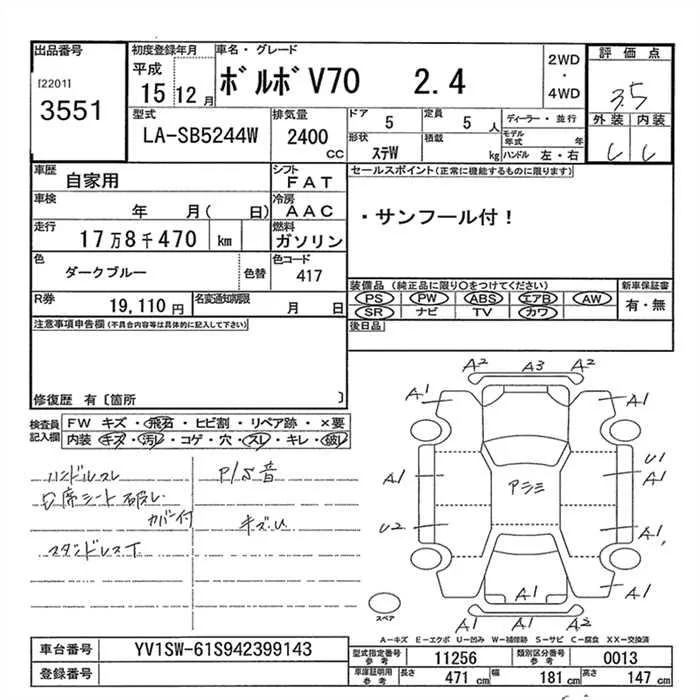 出品番号 初度登録年月 車名・グレード 2WD 評価点
[2201] 平成 ボルボV70 2.4 ・ 3.5
3551 15 12月 4WD 外装 内装
型式 排気量 ドア 定員 ディーラー・並行
LA-SB5244W 2400 5 5人 モデル年式 年
CC 形状 ステW 積載 kg ハンドル 左・右
車歴 自家用 シフト FAT セールスポイント(正常に機能するものに限ります)
車検 年 月( 日) 冷房 AAC ・サンフール付!
走行 17万8千470 km 燃料 ガソリン
色 ダークブルー 色替 色コード 417
装備品 (純正品に限り○をつけてください) 新車保証書
PS PW ABS エアB AW 有・無
SR ナビ TV カワ
R券 19,110円 名変通知期限 月 日
注意事項申告欄(不具合内容等は具体的に記入して下さい) 後日品
修復歴 有〔箇所 〕
検査員記入欄 FW キズ・飛石・ヒビ割・リペア跡・×要
内装 キズ・汚レ・コゲ・穴・スレ・キレ・破レ
ハンドルスレ P/S音
シート破レ
カバー付 キズU
スタンドレスT
A2 A3 A2
A1 A1
A1 U1
A1
アシミ
U2 A1
A1 A1 A1
A1 A1 A2
スペア
A-キズ E-エクボ U-凹み W-補修跡 S-サビ C-腐食 XX-交換済
車台番号 YV1SW-61S942399143
型式指定番号 参考 11256 類別区分番号 参考 0013
登録番号
車庫証明用 参考 長さ 471 cm 幅 181 cm 高さ 147 cm